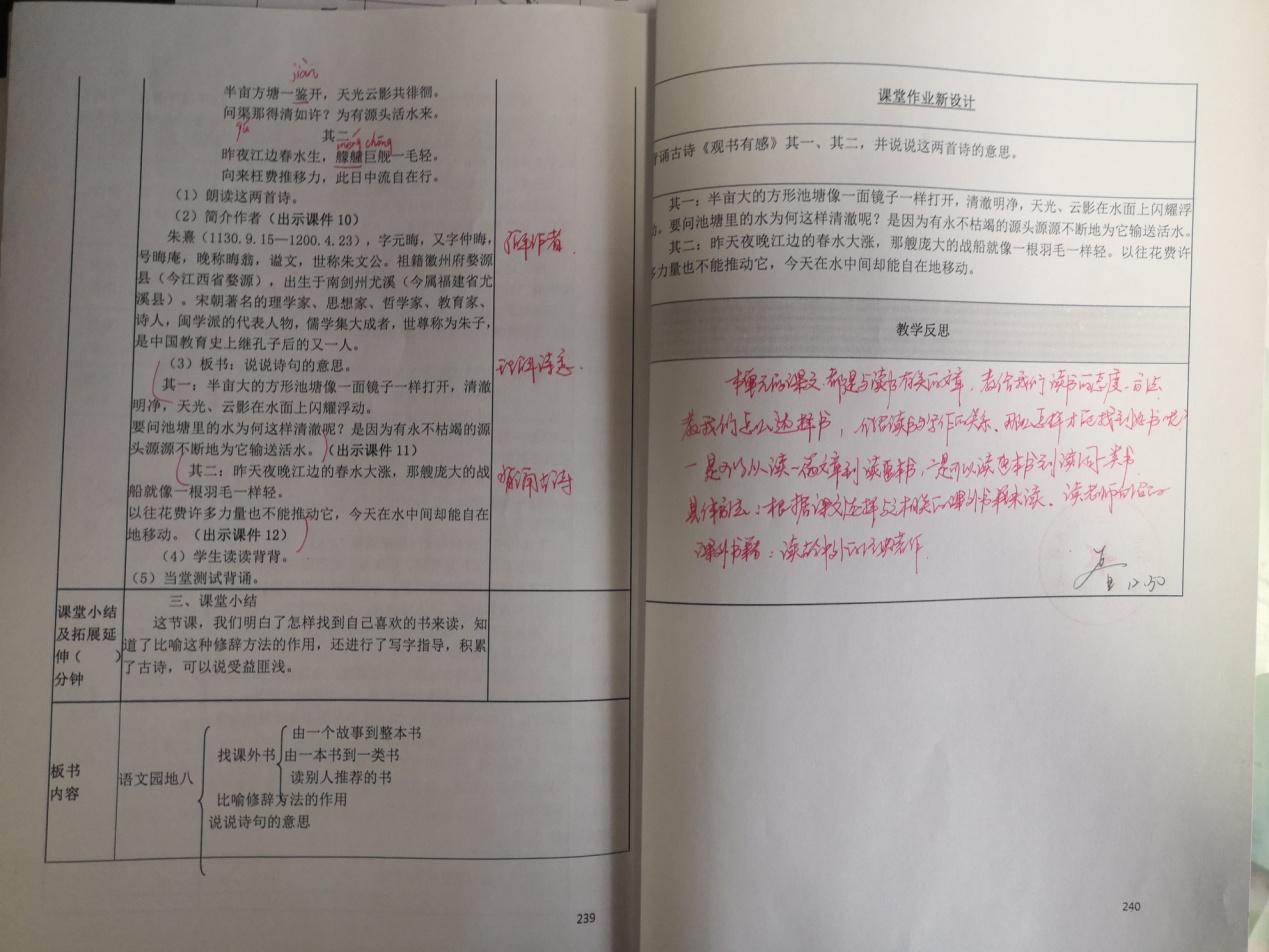 jiàn
半亩方塘一鉴开，天光云影共徘徊。
问渠那得清如许？为有源头活水来。
qú
其二
méng chōng
昨夜江边春水生，艨艟巨舰一毛轻。
向来枉费推移力，此日中流自在行。
（1）朗读这两首诗。
（2）简介作者（出示课件 10）
朱熹（1130.9.15—1200.4.23），字元晦，又字仲晦，
号晦庵，晚称晦翁，谥文，世称朱文公。祖籍徽州府婺源
县（今江西省婺源），出生于南剑州尤溪（今属福建省尤
溪县）。宋朝著名的理学家、思想家、哲学家、教育家、
诗人，闽学派的代表人物，儒学集大成者，世尊称为朱子，
是中国教育史上继孔子后的又一人。
（3）板书：说说诗句的意思。
其一：半亩大的方形池塘像一面镜子一样打开，清澈
明净，天光、云影在水面上闪耀浮动。
要问池塘里的水为何这样清澈呢？是因为有永不枯竭的源
头源源不断地为它输送活水。（出示课件 11）
其二：昨天夜晚江边的春水大涨，那艘庞大的战
船就像一根羽毛一样轻。
以往花费许多力量也不能推动它，今天在水中间却能自在
地移动。（出示课件 12）
（4）学生读读背背。
（5）当堂测试背诵。
了解作者.
理解诗意.
背诵古诗
课堂小结
及拓展延
伸（ ）
分钟
三、课堂小结
这节课，我们明白了怎样找到自己喜欢的书来读，知
道了比喻这种修辞方法的作用，还进行了写字指导，积累
了古诗，可以说受益匪浅。
板书
内容
语文园地八
找课外书
由一个故事到整本书
由一本书到一类书
读别人推荐的书
比喻修辞方法的作用
说说诗句的意思
239
课堂作业新设计
背诵古诗《观书有感》其一、其二，并说说这两首诗的意思。
其一：半亩大的方形池塘像一面镜子一样打开，清澈明净，天光、云影在水面上闪耀浮
动。要问池塘里的水为何这样清澈呢？是因为有永不枯竭的源头源源不断地为它输送活水。
其二：昨天夜晚江边的春水大涨，那艘庞大的战船就像一根羽毛一样轻。以往花费许
多力量也不能推动它，今天在水中间却能自在地移动。
教学反思
本单元的课文都是与读书有关的文章，教给我们读书的态度、方法
教我们怎么选择书，读书与写作的关系。那么怎样才能找到好书呢？
一是可以从读一篇文章到读整本书，二是可以读整本书到读同一类书
具体方法：根据课文选择与之相关的课外书籍来读、读老师
课外书籍；读古今中外的经典著作.
12.30
240